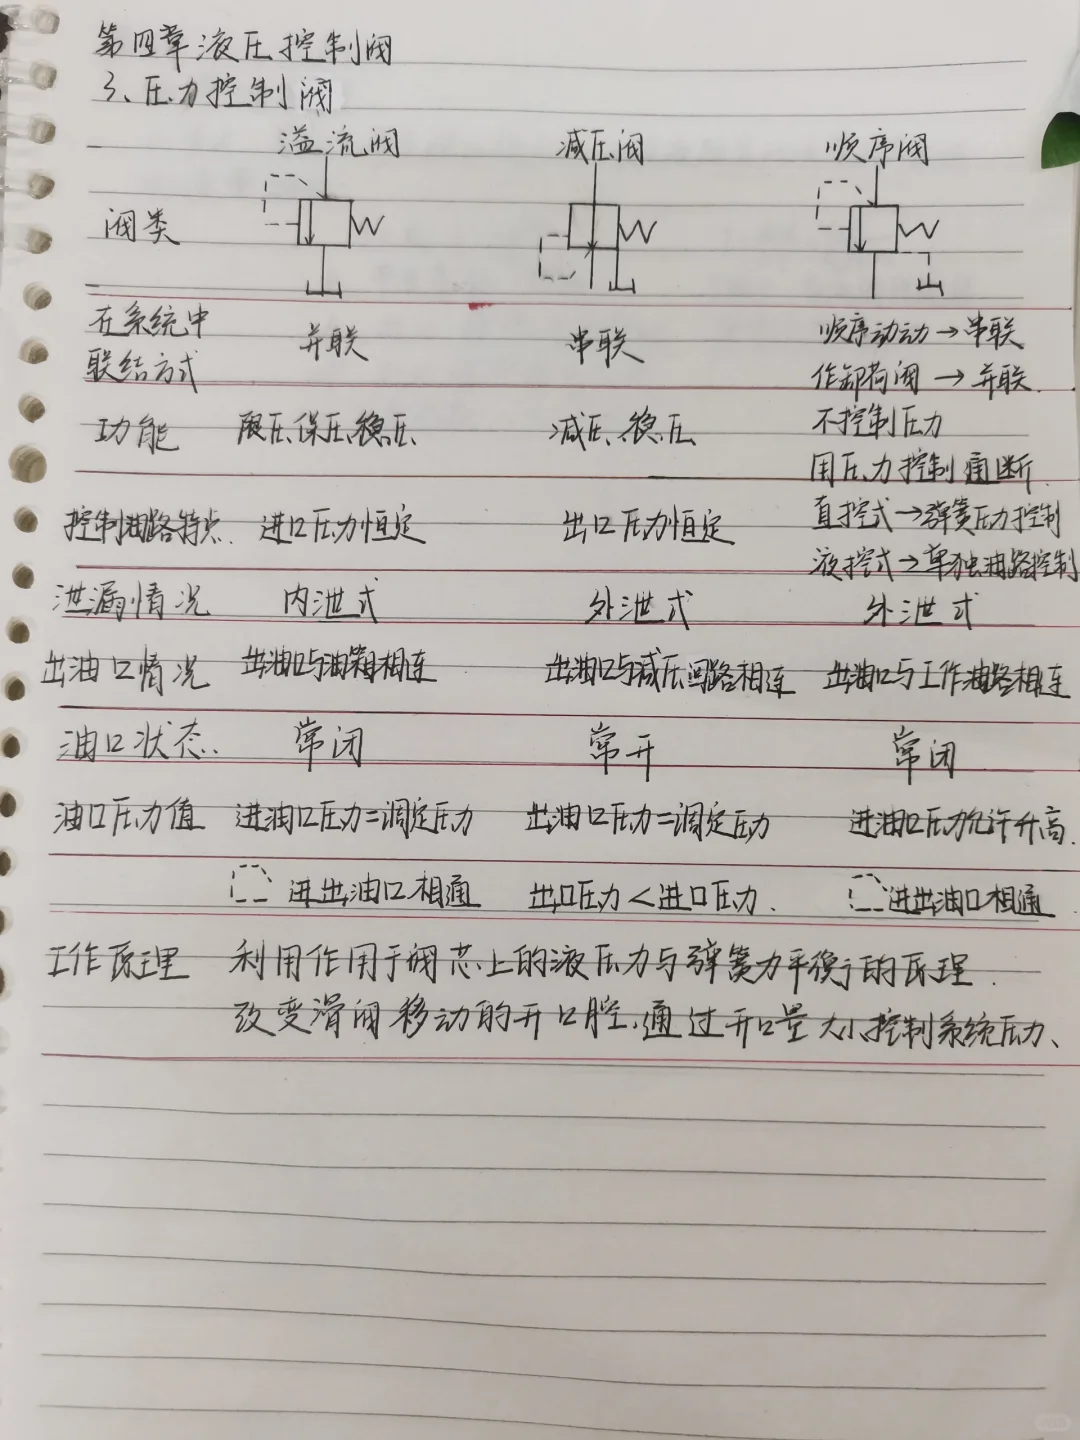 第四章液压控制阀
3、压力控制阀
溢流阀 减压阀 顺序阀
阀类
在系统中
联结方式
并联 串联 顺序动动→串联
作卸荷阀→并联.
功能 限压、保压、稳压、 减压、稳压 不控制压力
用压力控制通断.
控制油路特点. 进口压力恒定 出口压力恒定 直控式→弹簧压力控制
液控式→单独油路控制
泄漏情况 内泄式 外泄式 外泄式
出油口情况 出油口与油箱相连 出油口与减压回路相连 出油口与工作油路相连
油口状态. 常闭 常开 常闭
油口压力值 进油口压力=调定压力 出油口压力=调定压力 进油口压力允许升高.
进出油口相通 出口压力<进口压力. 进出油口相通
工作原理 利用作用于阀芯上的液压力与弹簧力平衡的原理.
改变滑阀移动的开口腔、通过开口量大小控制系统压力、